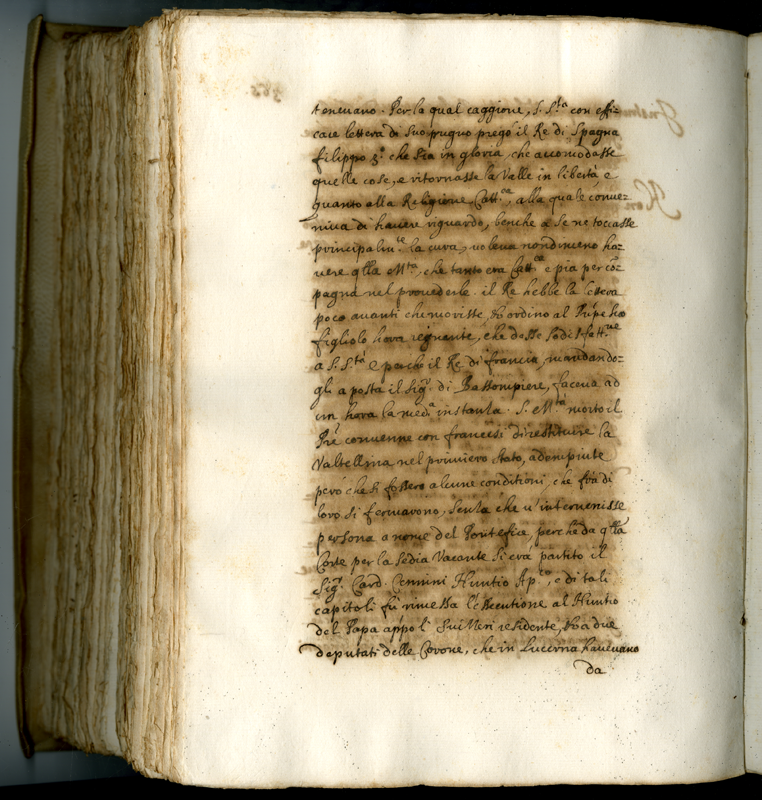 teneuano. Per la qual caggione, S. S.ta con effi=
cace lettera di suo pugno pregò il Re di Spagna
filippo 3.o che sia in gloria, che accomodasse
quelle cose, e ritornasse la Valle in libertà, e
quanto alla Religione Catt.ca, alla quale conue=
niua di hauere riguardo, benche a se ne toccasse
principalm.te la cura, uoleua nondimeno ha=
uere q̃lla M.tà, che tanto era Catt.ca e pia per cõ=
pagna nel prouederle. il Re hebbe la lettera
poco auanti che morisse, & ordinò al Prĩpe suo
figliolo hora regnante, che desse sodisfatt.ne
a S. S.tà e perche il Re di francia, mandando=
gli a posta il Sig.r di Bassompiere, faceua ad
un hora la med.a instanza. S. M.tà morto il
Pr̃e conuenne con francesi di restituire la
Valtellina nel primiero stato, adempiute
però che si fossero alcune conditioni, che frà di
loro si fermauono, senza che u'interuenisse
persona a nome del Pontefice, perche da q̃lla
Corte per la Sedia Vacante si era partito il
Sig.r Card. Cennini Nuntio Ap.co, e di tali
capitoli fù rimessa l'essecutione al Nuntio
del Papa app.o li Suizzeri residente, & a due
deputati delle Corone, che in Lucerna haueuano
da